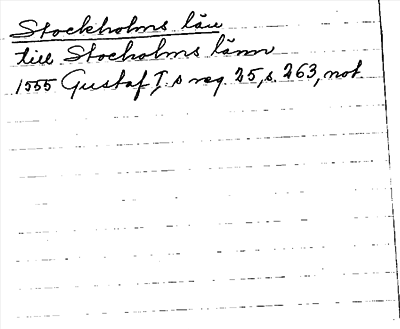 Stockholms län
till Stocholms länn
1555 Gustaf I.s reg. 25, s. 263, not